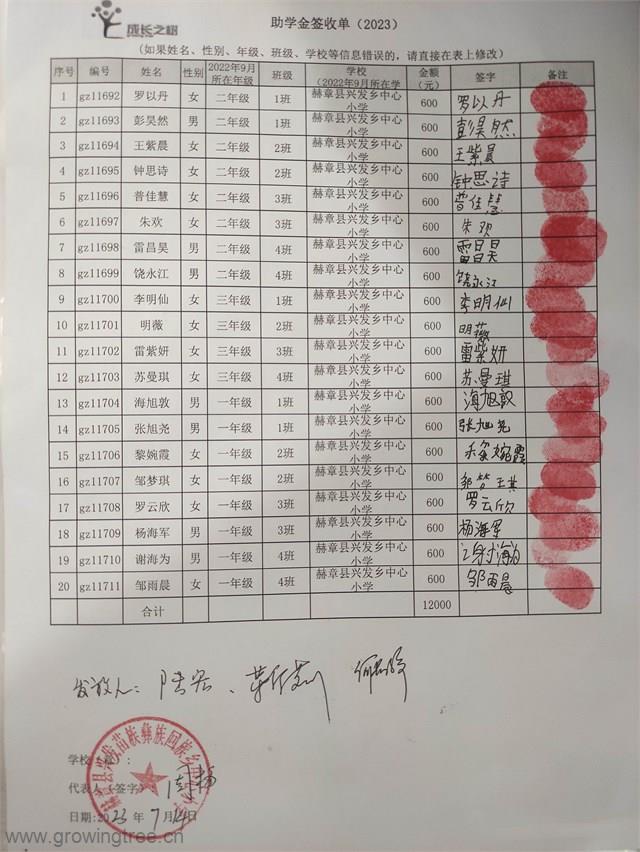 成长之树
助学金签收单（2023）
（如果姓名、性别、年级、班级、学校等信息错误的，请直接在表上修改）
序号 编号 姓名 性别 2022年9月所在年级 班级 学校（2022年9月所在学 金额（元） 签字 备注
1 gz11692 罗以丹 女 二年级 1班 赫章县兴发乡中心小学 600 罗以丹
2 gz11693 彭昊然 男 二年级 1班 赫章县兴发乡中心小学 600 彭昊然
3 gz11694 王紫晨 女 二年级 2班 赫章县兴发乡中心小学 600 王紫晨
4 gz11695 钟思诗 女 二年级 2班 赫章县兴发乡中心小学 600 钟思诗
5 gz11696 普佳慧 女 二年级 3班 赫章县兴发乡中心小学 600 普佳慧
6 gz11697 朱欢 女 二年级 3班 赫章县兴发乡中心小学 600 朱欢
7 gz11698 雷昌昊 男 二年级 4班 赫章县兴发乡中心小学 600 雷昌昊
8 gz11699 饶永江 男 二年级 4班 赫章县兴发乡中心小学 600 饶永江
9 gz11700 李明仙 女 三年级 1班 赫章县兴发乡中心小学 600 李明仙
10 gz11701 明薇 女 三年级 2班 赫章县兴发乡中心小学 600 明薇
11 gz11702 雷紫妍 女 三年级 3班 赫章县兴发乡中心小学 600 雷紫妍
12 gz11703 苏曼琪 女 三年级 4班 赫章县兴发乡中心小学 600 苏曼琪
13 gz11704 海旭敦 男 一年级 1班 赫章县兴发乡中心小学 600 海旭敦
14 gz11705 张旭尧 男 一年级 1班 赫章县兴发乡中心小学 600 张旭尧
15 gz11706 黎婉霞 女 一年级 2班 赫章县兴发乡中心小学 600 黎婉霞
16 gz11707 邹梦琪 女 一年级 2班 赫章县兴发乡中心小学 600 邹梦琪
17 gz11708 罗云欣 女 一年级 3班 赫章县兴发乡中心小学 600 罗云欣
18 gz11709 杨海军 男 一年级 3班 赫章县兴发乡中心小学 600 杨海军
19 gz11710 谢海为 男 一年级 4班 赫章县兴发乡中心小学 600 谢海为
20 gz11711 邹雨晨 女 一年级 4班 赫章县兴发乡中心小学 600 邹雨晨
合计 12000
发放人：
学校 ：
代表人（签字）
日期：2023年7月14日
www.growingtree.cn